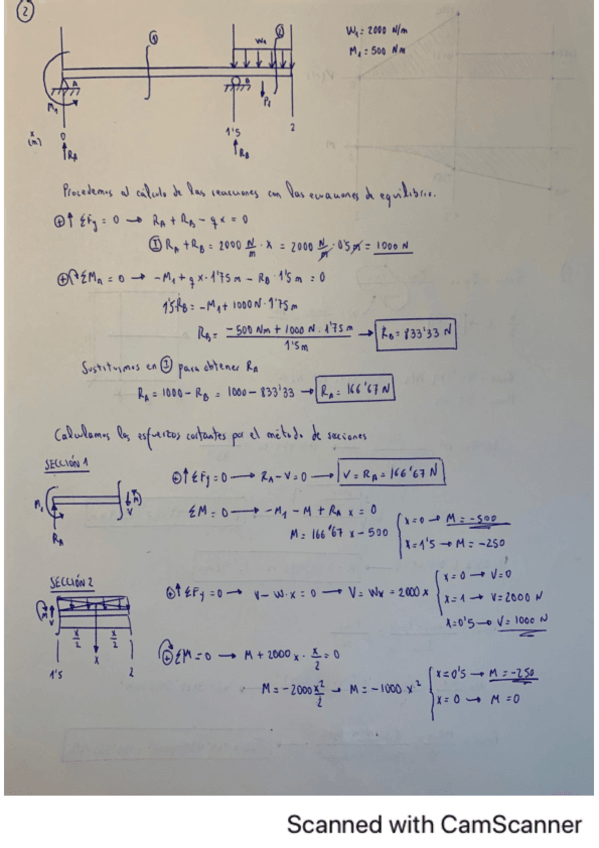 2
W₁ = 2000 N/m
M₁ = 500 Nm
① ②
W₁
A B
M₁ P₁
x (m) 0 1'5 2
R_A R_B
Procedemos al cálculo de las reacciones con las ecuaciones de equilibrio.
⊕↑ ΣFy = 0 → R_A + R_B - q x = 0
Ⓘ R_A + R_B = 2000 N/m · x = 2000 N/m · 0'5 m = 1000 N
⊕ ΣM_A = 0 → -M₁ + q x · 1'75 m - R_B · 1'5 m = 0
1'5 R_B = -M₁ + 1000 N · 1'75 m
R_B = (-500 Nm + 1000 N · 1'75 m) / 1'5 m → R_B = 833'33 N
Sustituimos en Ⓘ para obtener R_A
R_A = 1000 - R_B = 1000 - 833'33 → R_A = 166'67 N
Calculamos los esfuerzos cortantes por el método de secciones
SECCIÓN 1
⊕↑ ΣFy = 0 → R_A - V = 0 → V = R_A = 166'67 N
M₁ M V
R_A
ΣM = 0 → -M₁ - M + R_A x = 0
M = 166'67 x - 500
x = 0 → M = -500
x = 1'5 → M = -250
SECCIÓN 2
M V
x/2 x/2
x
1'5 2
⊕↑ ΣFy = 0 → V - W·x = 0 → V = Wx = 2000 x
x = 0 → V = 0
x = 1 → V = 2000 N
x = 0'5 → V = 1000 N
⊕ ΣM = 0 → M + 2000 x · x/2 = 0
M = -2000 x²/2 → M = -1000 x²
x = 0'5 → M = -250
x = 0 → M = 0
Scanned with CamScanner